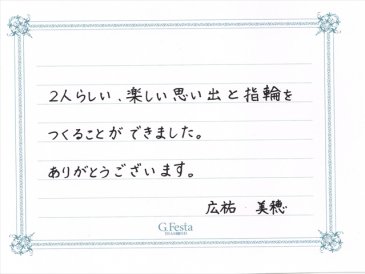 2人らしい、楽しい思い出と指輪を
つくることができました。
ありがとうございます。
広祐 美穂
G.Festa